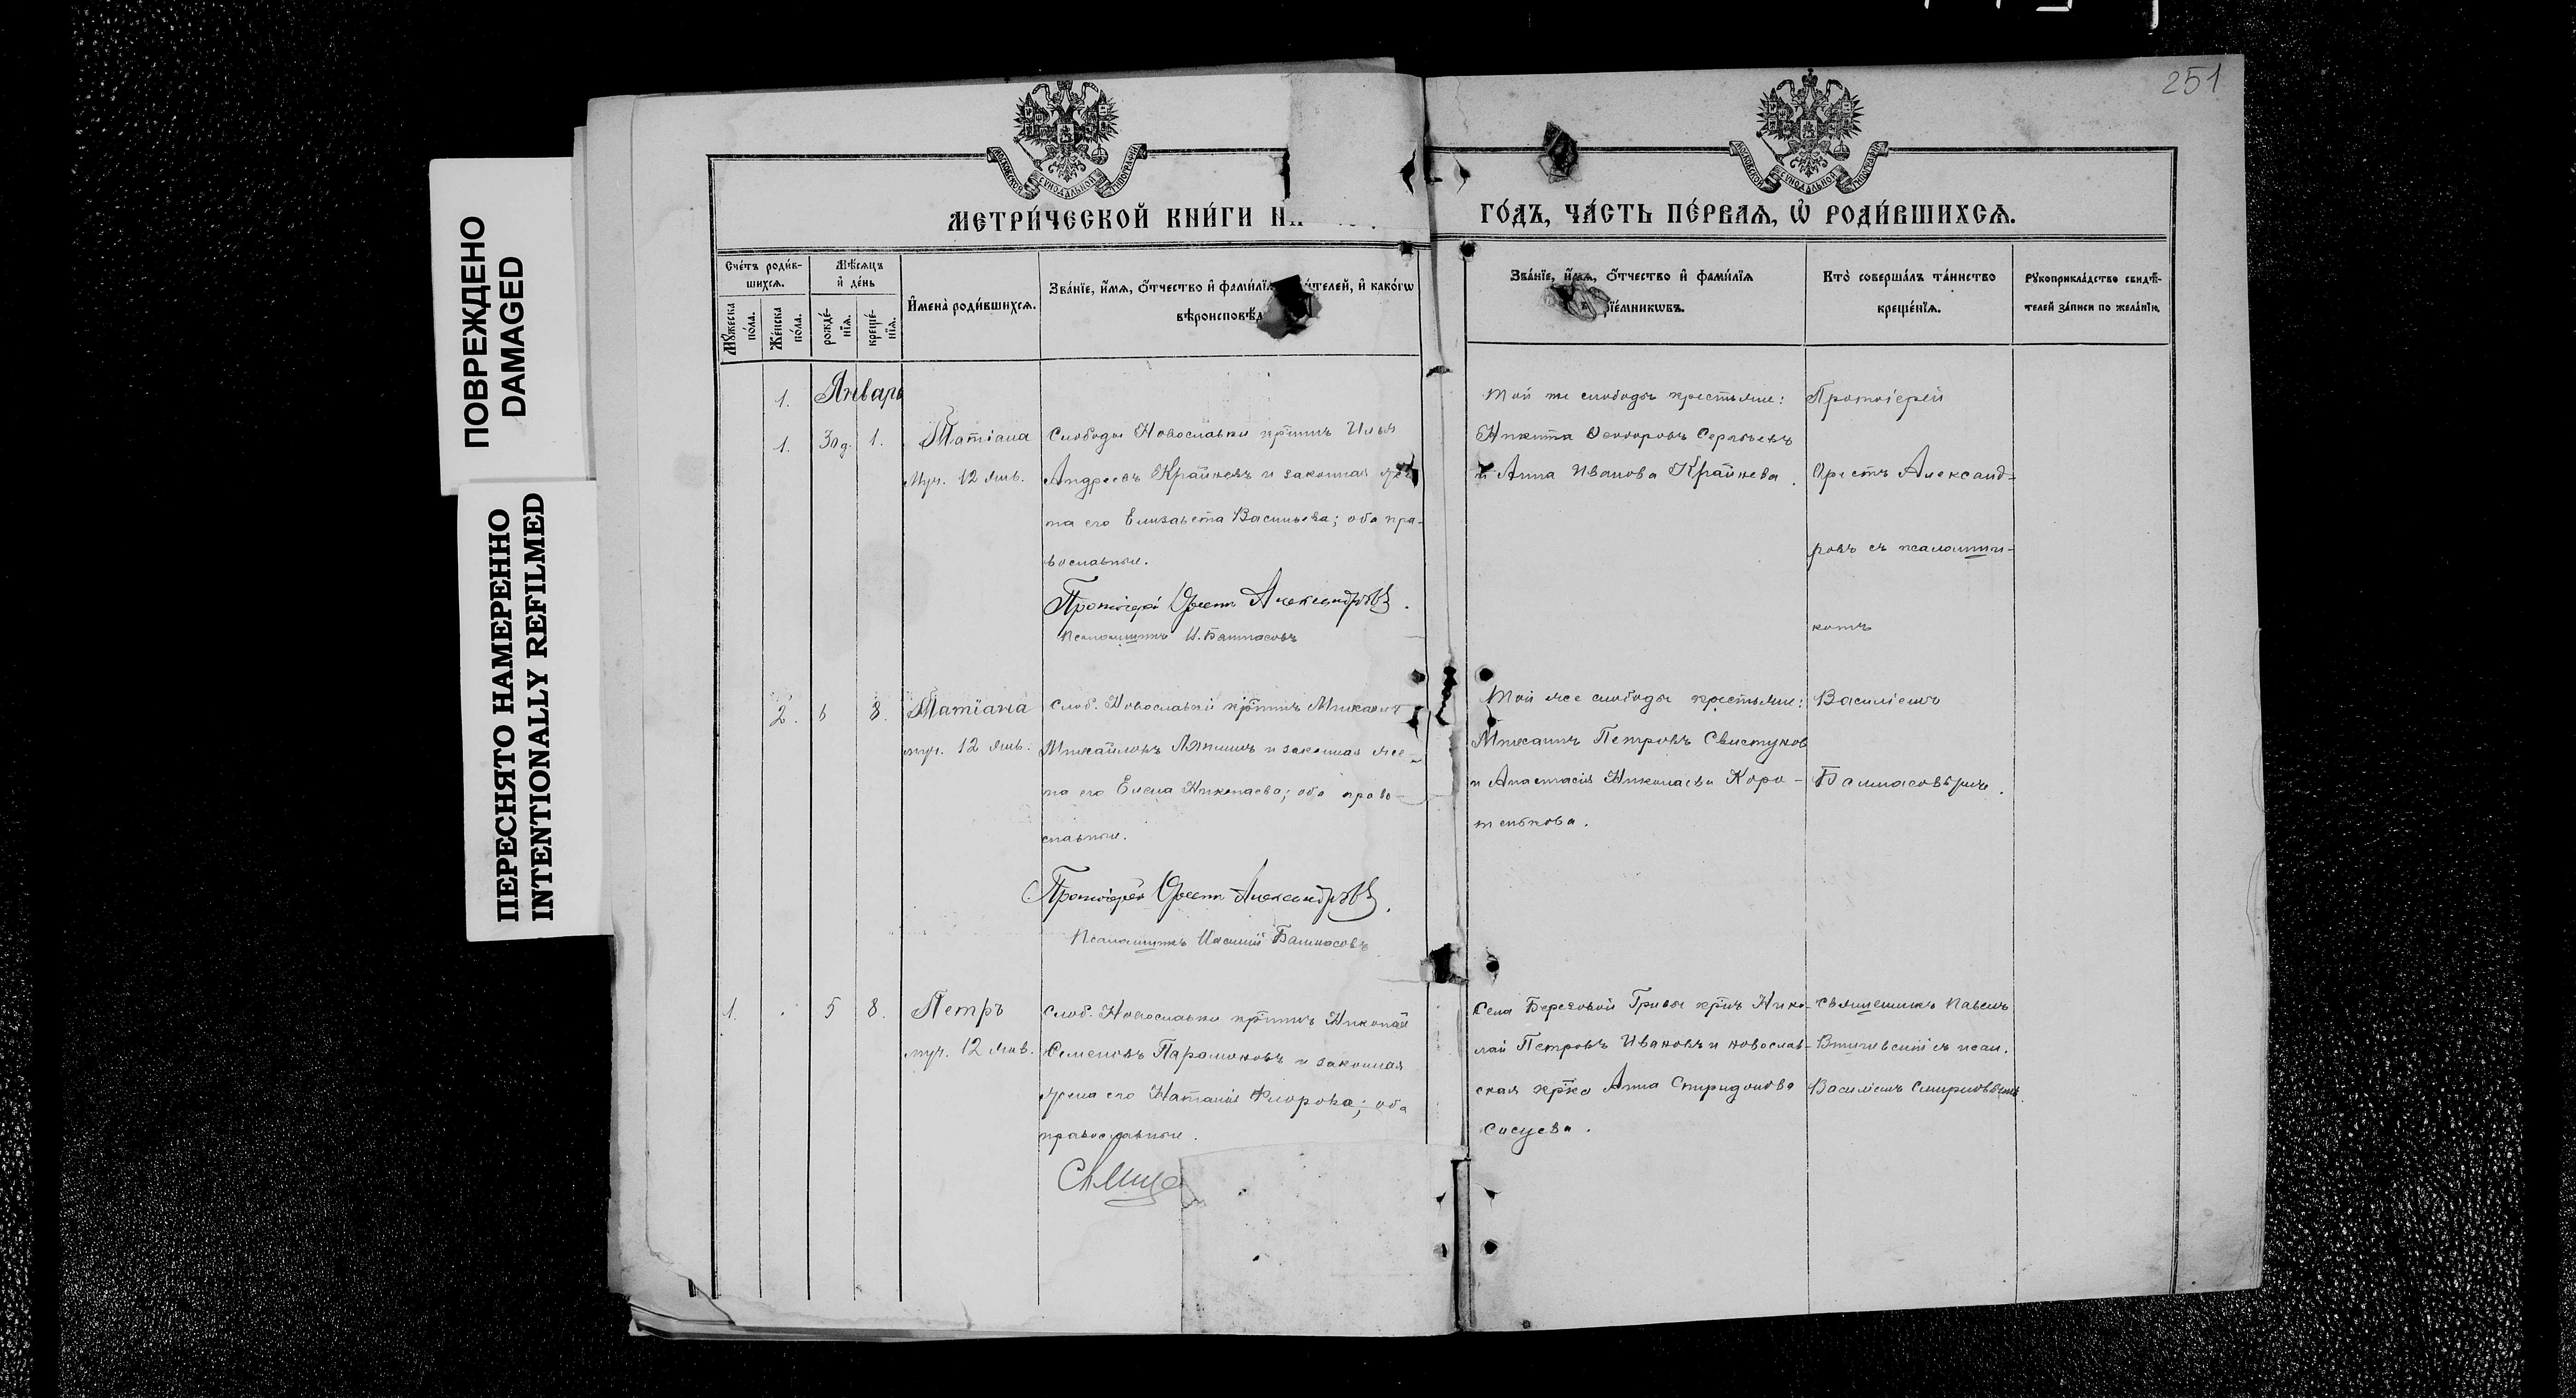 251
ПОВРЕЖДЕНО
DAMAGED
ПЕРЕСНЯТО НАМЕРЕННО
INTENTIONALLY REFILMED
МОСКОВСКОЙ СѴНОДАЛЬНОЙ ТИПОГРАФІИ
МОСКОВСКОЙ СѴНОДАЛЬНОЙ ТИПОГРАФІИ
МЕТРИ́ЧЕСКОЙ КНИ́ГИ
ГО́ДЪ, ЧА́СТЬ ПЕ́РВАѦ, Ѡ҆ РОДИ́ВШИХСѦ.
Сче́тъ роди́в-
шихсѧ.
Мꙋ́жеска
по́ла.
Же́нска
по́ла.
Мѣ́сѧцъ
и҆ де́нь
рожде́-
нїѧ.
креще́-
нїѧ.
И҆мена̀ роди́вшихсѧ.
Зва́нїе, и҆́мѧ, ѻ҆́тчество и҆ фами́лїѧ и҆ како́гѡ
вѣроисповѣ́д
Зва́нїе, и҆́мѧ, ѻ҆́тчество и҆ фами́лїѧ
їе́мникѡвъ.
Кто̀ соверша́лъ та́инство
креще́нїѧ.
Рꙋкоприкла́дство свидѣ́-
телей за́писи по жела́нїю.
1. Январь
1. 30 д. 1. Татіана
Муч. 12 янв.
Слободы Новославки кр̃нинъ Илья
Андреевъ Крайневъ и законная же
на его Елизавета Васильева; оба пра-
вославные.
Протоіерей Орестъ Александровъ.
Псаломщикъ В. Балмасовъ
Той же слободы крестьяне:
Никита Ѳеодоровъ Сергѣевъ
и Анна Иванова Крайнева.
Протоіерей
Орестъ Александ-
ровъ съ псаломщи-
комъ
2. 6 8. Татіана
муч. 12 янв.
Слоб. Новославки кр̃нинъ Михаилъ
Михайловъ Ляпинъ и законная же-
на его Елена Николаева; оба право-
славные.
Протоіерей Орестъ Александровъ.
Псаломщикъ Василій Балмасовъ
Той же слободы крестьяне:
Михаилъ Петровъ Свистунов
и Анастасія Николаева Коро-
тенкова.
Василіемъ
Балмасовымъ.
1. 5 8. Петръ
муч. 12 янв.
Слоб. Новославки кр̃нинъ Николай
Семеновъ Парамоновъ и законная
жена его Наталія Флорова; оба
православные.
Села Березовой Гривы кр̃нъ Нико-
лай Петровъ Ивановъ и новослав-
ская кр̃ка Анна Спиридонова
Сисуева.
Священникъ Павелъ
съ псал.
Василіемъ Смирновымъ